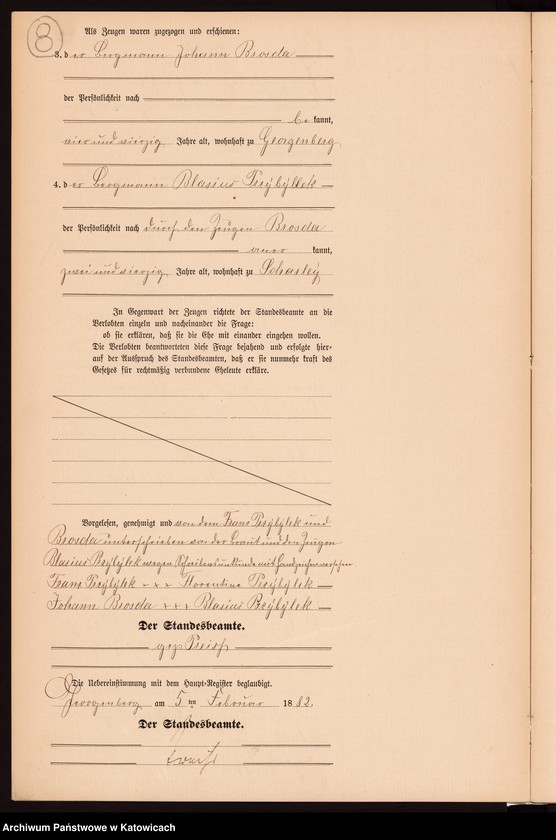 8
Als Zeugen waren zugezogen und erschienen:
3. der Bergmann Johann Brosda
der Persönlichkeit nach
be kannt,
vier und vierzig Jahre alt, wohnhaft zu Georgenberg
4. der Bergmann Blasius Przybyllek
der Persönlichkeit nach durch den Zeugen Brosda
aner kannt,
zwei und vierzig Jahre alt, wohnhaft zu Scharley
In Gegenwart der Zeugen richtete der Standesbeamte an die
Verlobten einzeln und nacheinander die Frage:
ob sie erklären, daß sie die Ehe mit einander eingehen wollen.
Die Verlobten beantworteten diese Frage bejahend und erfolgte hier-
auf der Ausspruch des Standesbeamten, daß er sie nunmehr kraft des
Gesetzes für rechtmäßig verbundene Eheleute erkläre.
Vorgelesen, genehmigt und von dem Franz Przybylek und
Brosda unterschrieben von der Braut und den Zeugen
Blasius Przybylek wegen Schreibensunkunde mit Handzeichen versehen
Franz Przybylek - x x x Florentine Przybylek
Johann Brosda x x x Blasius Przybylek
Der Standesbeamte.
gez
Die Uebereinstimmung mit dem Haupt-Register beglaubigt.
Georgenberg am 5ten Februar 1882.
Der Standesbeamte.
Archiwum Państwowe w Katowicach